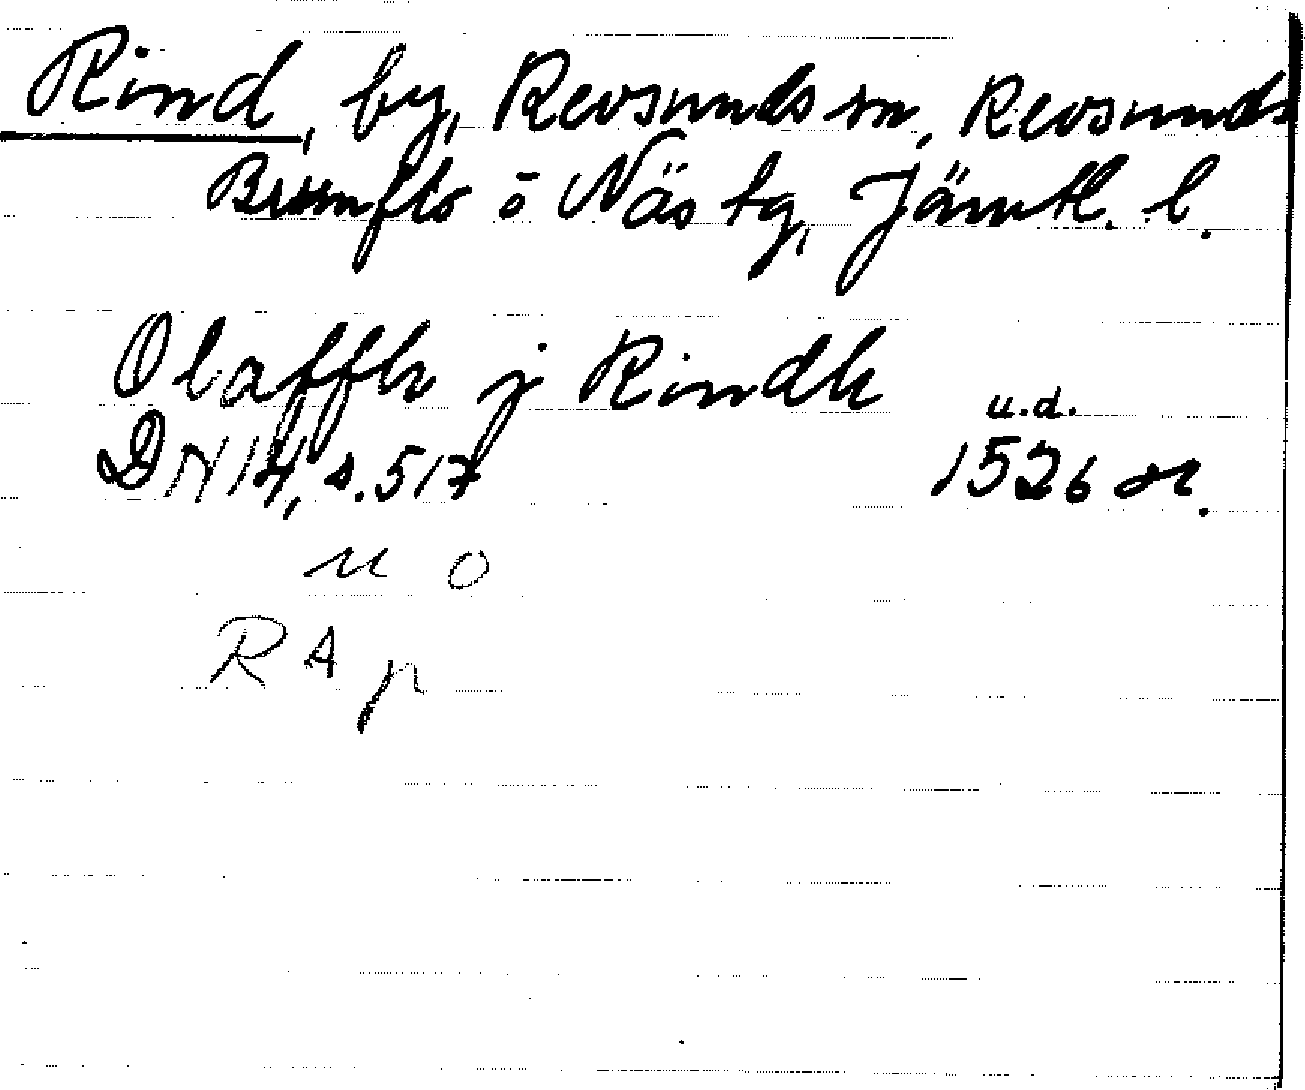 Rind, by, Revsunds sn, Revsunds
Brunflo o Näs tg, Jämtl. l.
Olaffh j Rindh u.d.
DN 14, s. 517 1526 or.
u o
RA p